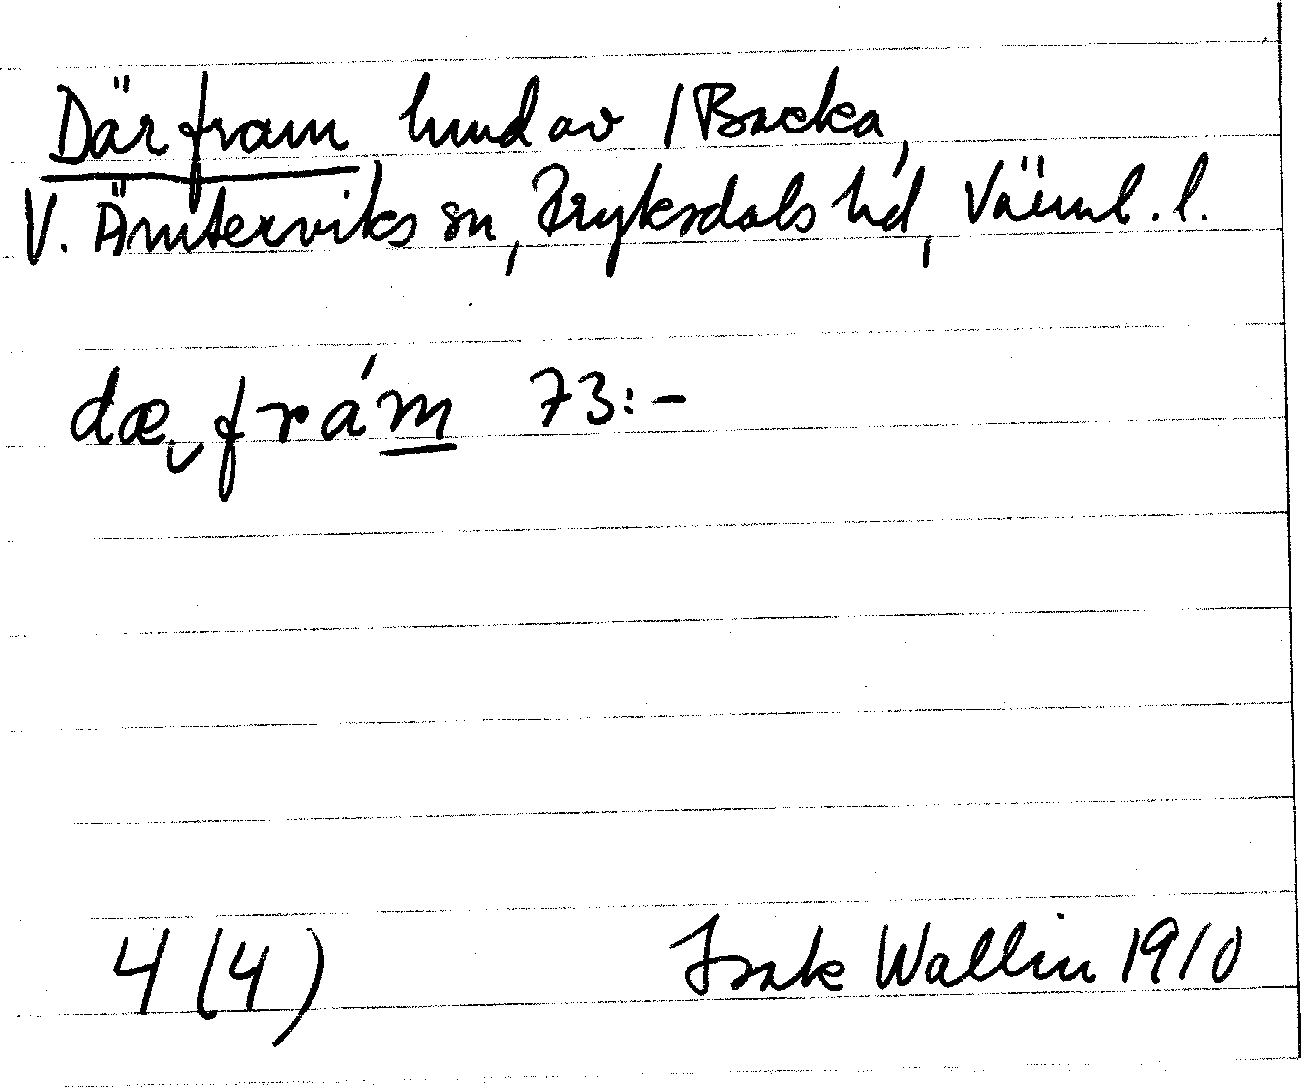 Där fram hmd av 1 Backa,
V. Ämterviks sn, Fryksdals hd, Värml. l.
dæ frám 73:-
4 (4) Isak Wallin 1910